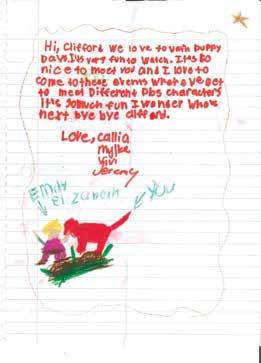 Hi, Clifford we love to wath puppy
Days. It's very fun to watch. It's so
nice to meet you and I love to
come to these events where we get
to meet Different Pbs characters
it's so much fun I wonder who's
next bye bye clifford.
Love, callia
mylke
vivi
Jeremy
Emily
elizabeth
You